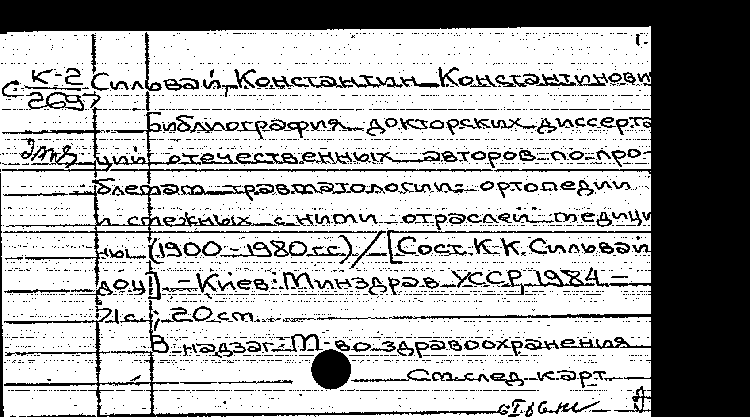 1.
С К-2 Сильвай, Константин Константинови
2697
Библиография докторских диссерта
ций отечественных авторов по про-
блемам травматологии, ортопедии
и смежных с ними отраслей медици
ны (1900-1980 гг) / [Сост. К.К. Сильвай
доц]. - Киев: Минздрав УССР, 1984 -
21с ; 20 см.
В надзаг: М-во здравоохранения
См. след. карт.